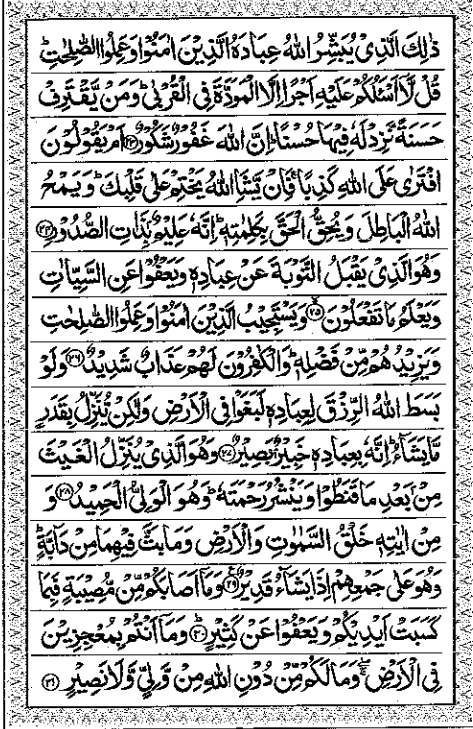 ذٰلِكَ الَّذِیْ یُبَشِّرُ اللهُ عِبَادَهُ الَّذِیْنَ اٰمَنُوْا وَعَمِلُوا الصّٰلِحٰتِ ؕ
قُلْ لَّاۤ اَسْئَلُكُمْ عَلَیْهِ اَجْرًا اِلَّا الْمَوَدَّةَ فِی الْقُرْبٰی ؕ وَمَنْ یَّقْتَرِفْ
حَسَنَةً نَّزِدْ لَهٗ فِیْهَا حُسْنًا ؕ اِنَّ اللهَ غَفُوْرٌ شَكُوْرٌ ﴿۲۳﴾ اَمْ یَقُوْلُوْنَ
افْتَرٰی عَلَی اللهِ كَذِبًا ۚ فَاِنْ یَّشَاِ اللهُ یَخْتِمْ عَلٰی قَلْبِكَ ؕ وَیَمْحُ
اللهُ الْبَاطِلَ وَیُحِقُّ الْحَقَّ بِكَلِمٰتِهٖ ؕ اِنَّهٗ عَلِیْمٌۢ بِذَاتِ الصُّدُوْرِ ﴿۲۴﴾
وَهُوَ الَّذِیْ یَقْبَلُ التَّوْبَةَ عَنْ عِبَادِهٖ وَیَعْفُوْا عَنِ السَّیِّاٰتِ
وَیَعْلَمُ مَا تَفْعَلُوْنَ ﴿۲۵﴾ وَیَسْتَجِیْبُ الَّذِیْنَ اٰمَنُوْا وَعَمِلُوا الصّٰلِحٰتِ
وَیَزِیْدُهُمْ مِّنْ فَضْلِهٖ ؕ وَالْكٰفِرُوْنَ لَهُمْ عَذَابٌ شَدِیْدٌ ﴿۲۶﴾ وَلَوْ
بَسَطَ اللهُ الرِّزْقَ لِعِبَادِهٖ لَبَغَوْا فِی الْاَرْضِ وَلٰكِنْ یُّنَزِّلُ بِقَدَرٍ
مَّا یَشَآءُ ؕ اِنَّهٗ بِعِبَادِهٖ خَبِیْرٌۢ بَصِیْرٌ ﴿۲۷﴾ وَهُوَ الَّذِیْ یُنَزِّلُ الْغَیْثَ
مِنْۢ بَعْدِ مَا قَنَطُوْا وَیَنْشُرُ رَحْمَتَهٗ ؕ وَهُوَ الْوَلِیُّ الْحَمِیْدُ ﴿۲۸﴾ وَ
مِنْ اٰیٰتِهٖ خَلْقُ السَّمٰوٰتِ وَالْاَرْضِ وَمَا بَثَّ فِیْهِمَا مِنْ دَآبَّةٍ ؕ
وَهُوَ عَلٰی جَمْعِهِمْ اِذَا یَشَآءُ قَدِیْرٌ ﴿۲۹﴾ وَمَاۤ اَصَابَكُمْ مِّنْ مُّصِیْبَةٍ فَبِمَا
كَسَبَتْ اَیْدِیْكُمْ وَیَعْفُوْا عَنْ كَثِیْرٍ ﴿۳۰﴾ وَمَاۤ اَنْتُمْ بِمُعْجِزِیْنَ
فِی الْاَرْضِ ۖۚ وَمَا لَكُمْ مِّنْ دُوْنِ اللهِ مِنْ وَّلِیٍّ وَّلَا نَصِیْرٍ ﴿۳۱﴾